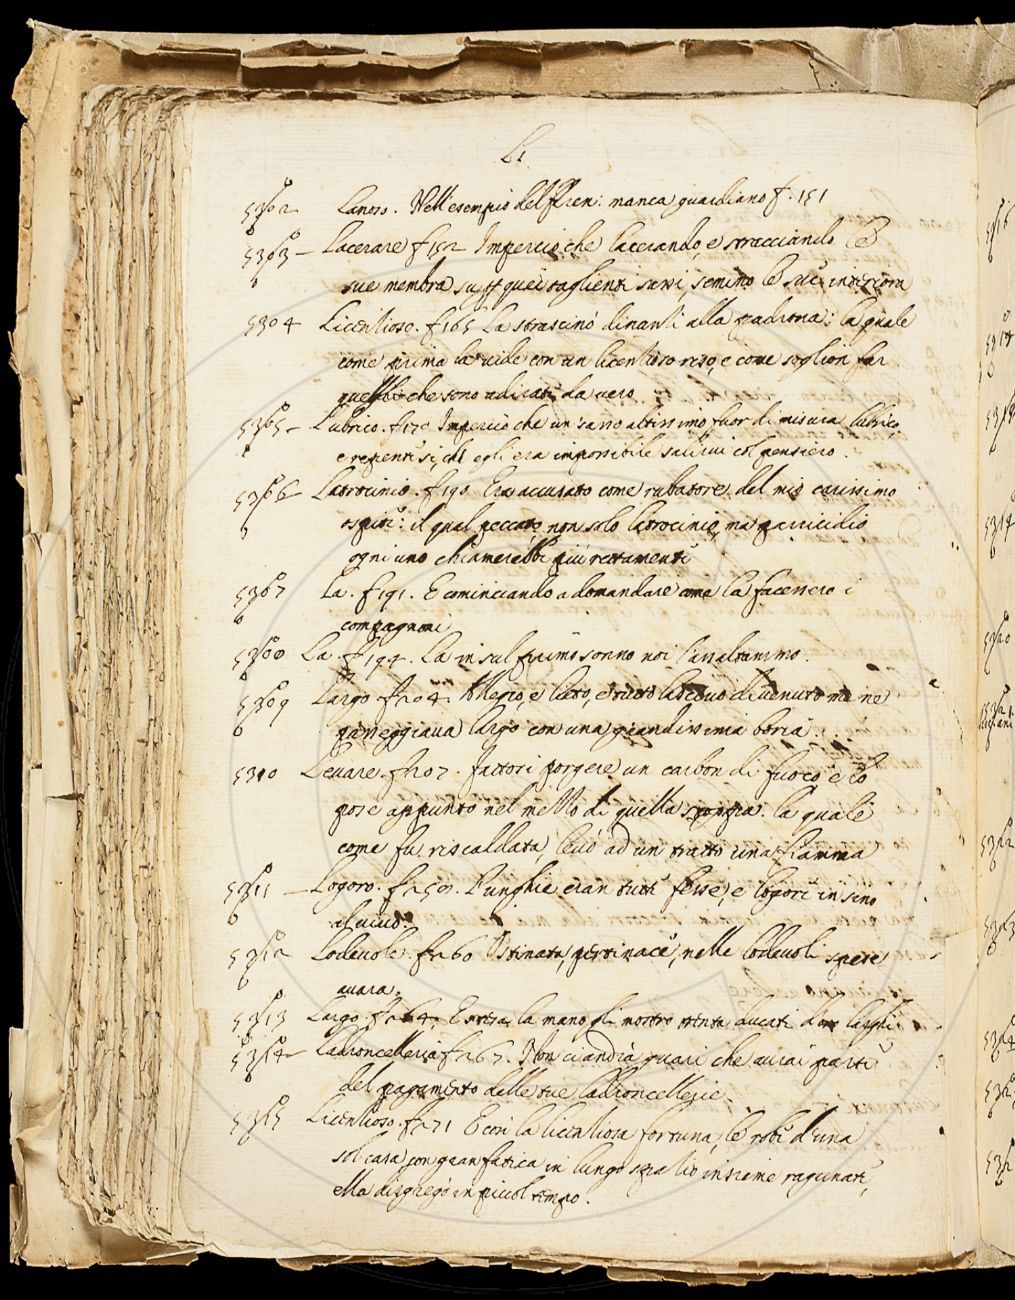 Li
5302 Lanoso. Nell'esempio del Firen: manca guardiano f. 151
5303 – Lacerare f 152 Impercioche lacerando, e stracciando le
sue membra su p quei taglienti sassi, seminò le sue interiora
5304 Licentioso. f. 165 La strascinò dinanzi alla padrona: la quale
come prima la vide con un licentioso riso, e come soglion far
quelli che sono adirati da vero
5305 – Lubrico. f. 170 Impercio che un sasso altissimo fuor di misura lubrico,
e repente si, che egli era impossibile salirvi col pensiero.
5306 – Latrocinio. f. 190 Era accusato come rubatore del mio carissimo
ospite: il qual peccato non solo latrocinio, ma parricidio
ogni uno chiamerebbe piu rettamente
5307 La. f 191. E cominciando a domandare come la facessero i
compagnoni
5308 La. f 194. La in sul primo sonno noi l'assaltammo.
5309 Largo f 204. Allegro, e lieto, e tutto lascivo divenuto me ne
passeggiava largo con una grandissima boria.
5310 Levare. f 207. Fattosi porgere un carbon di fuoco e lo
pose appunto nel mezzo di quella stoppa. la quale
come fu riscaldata, levò ad un tratto una fiamma
5311 – Logoro. f 250. L'unghie eran tutte fesse, e logore insino
al vivo.
5312 Lodevole. f. 260 Ostinata, pertinace, nelle lodevoli spese
avara.
5313 Largo. f 264. la mano gli mostrò ducati larghi
5314 – Ladroncelleria f 267. Non ci andrà guari che avrai parte
del pagamento delle tue ladroncellerie.
5315 Licentioso. f. 271 E con la licentiosa fortuna, le robe d'una
sol casa con gran fatica in lungo spatio insieme ragunate,
ella disgregò in piccol tempo.